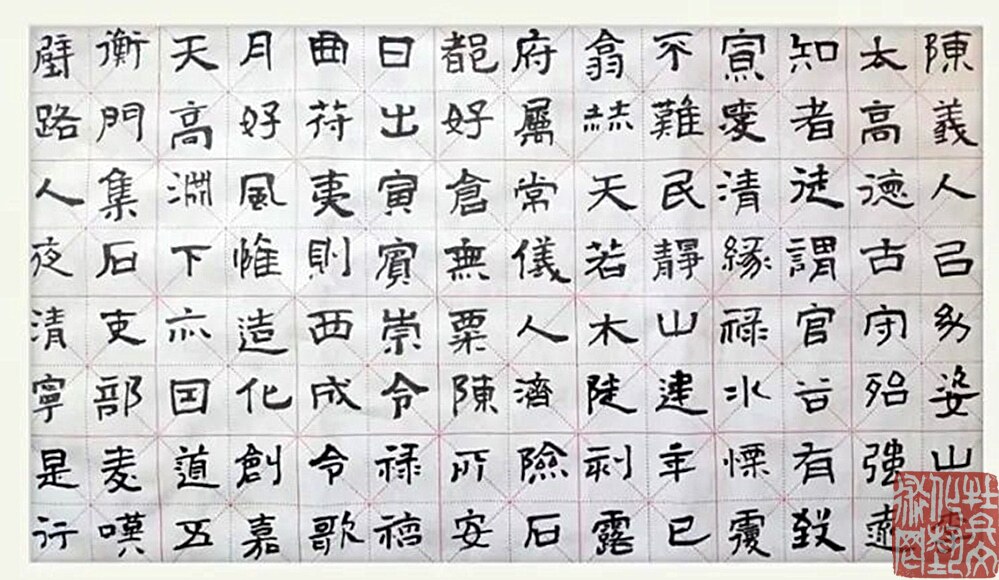 陳義人己山
太高德古守殆強
知者徒謂官谷有
宣清緣祿水慄覆
不難民靜山建年已
翕赫天若木陡利露
府屬常儀人濟險石
好倉無粟陳所安
日出寅賓崇令祿福
曲符夷則西成令歌
月好風惟造化創嘉
天高淵下亦回道五
衡門集石部嘆
路人夜清寧是行